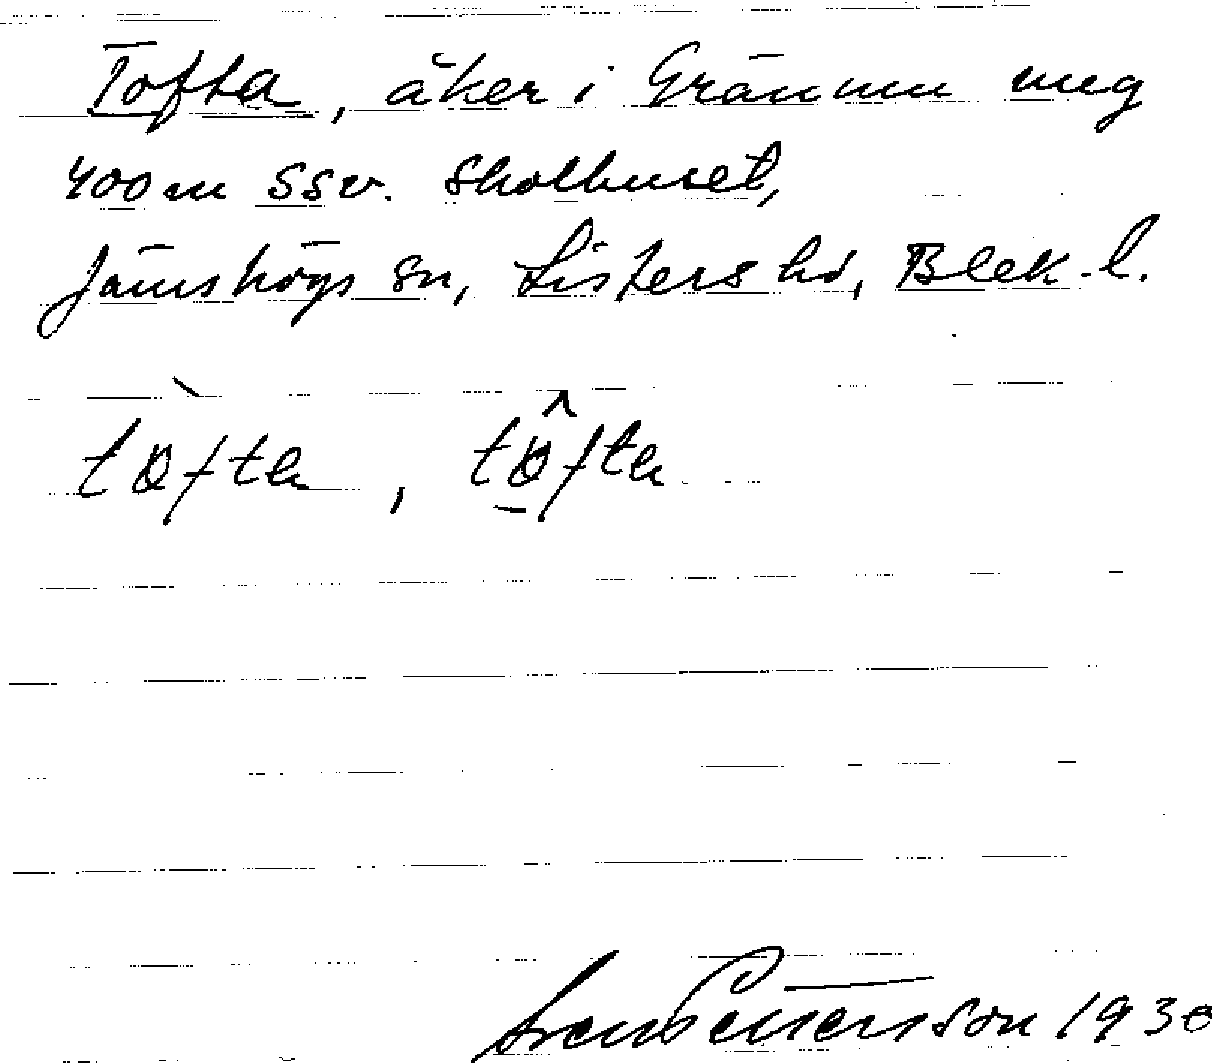 Tofta, åker i Grännum ung
400 m SSv. skolhuset,
Jämshögs sn, Listers hd, Blek. l.
tòfta, tôfta
Pettersson 1930